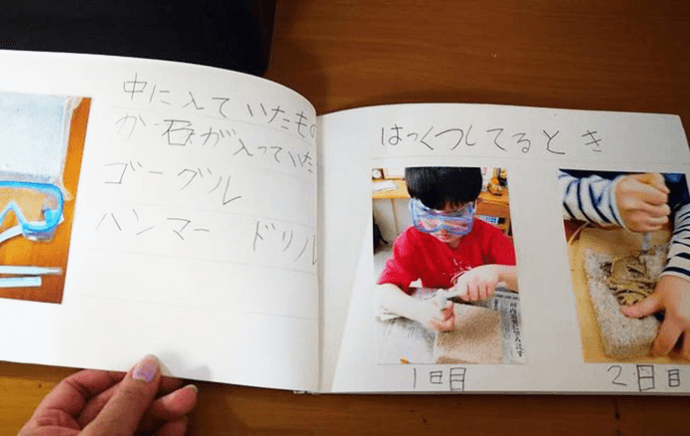 中に入ていたもの
か石が入っていた
ゴーグル
ハンマー ドリル
はっくつしてるとき
1日目
2日目